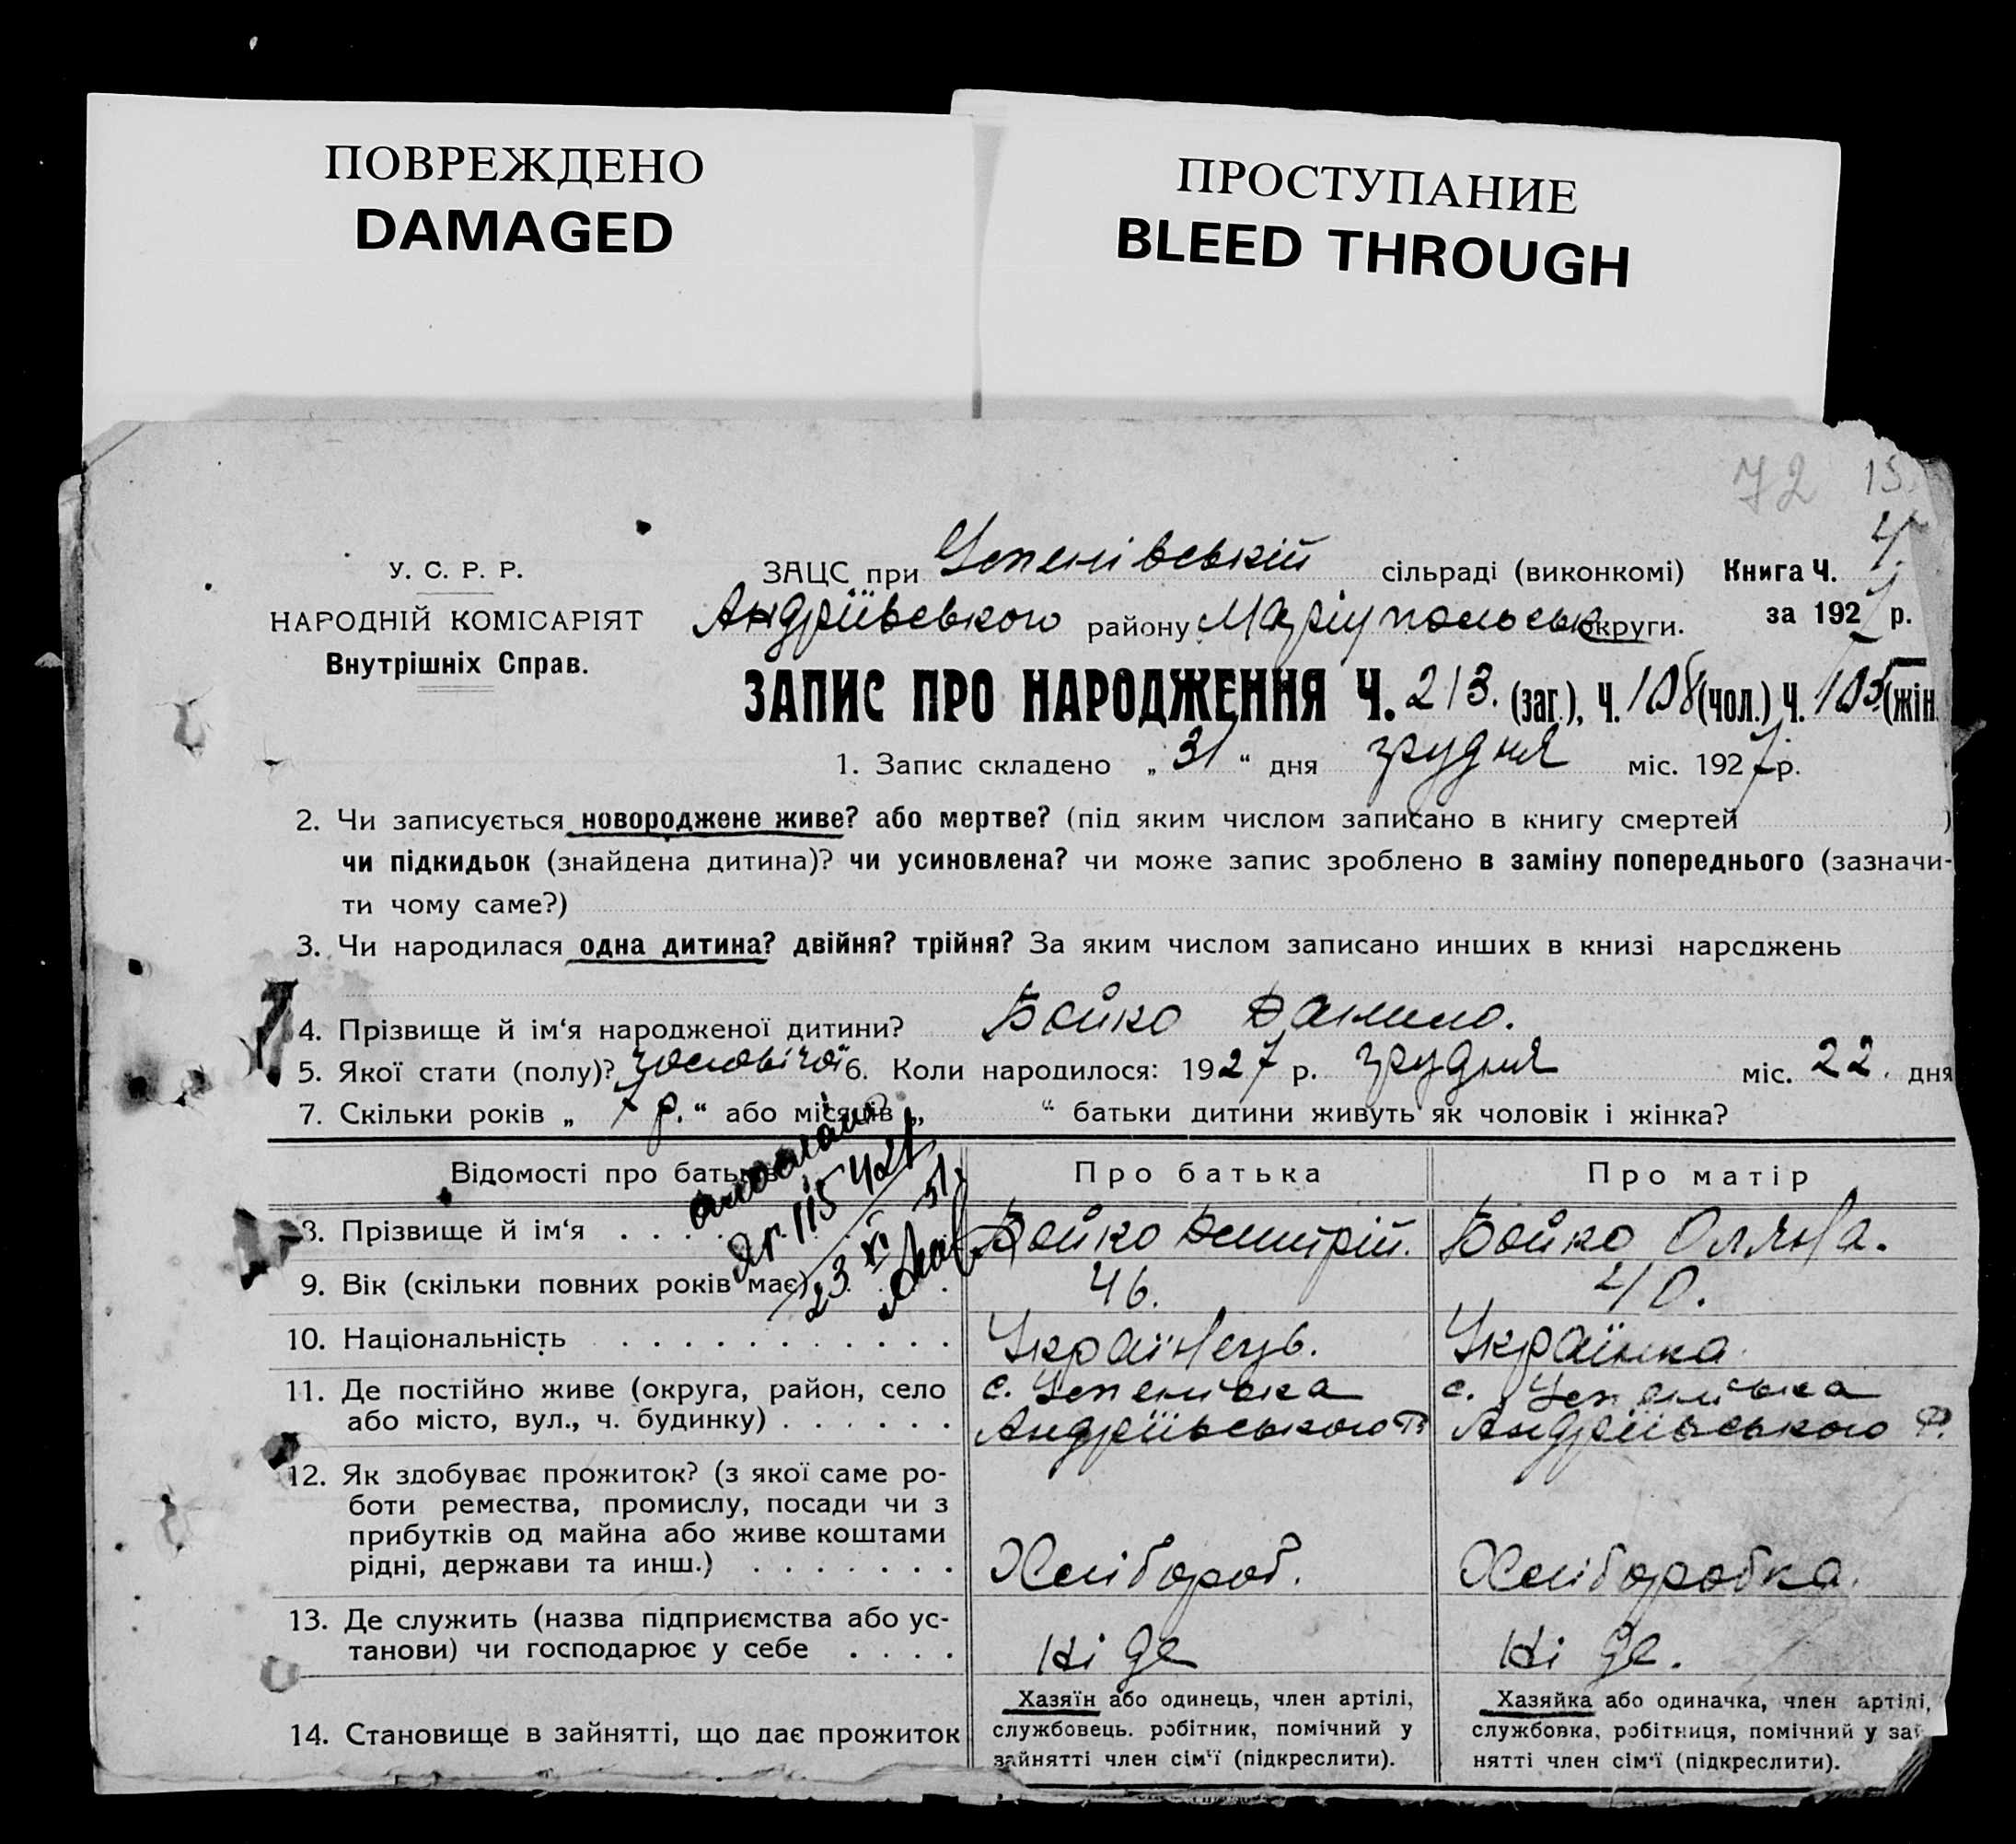 ПОВРЕЖДЕНО
DAMAGED
ПРОСТУПАНИЕ
BLEED THROUGH
72 15.
У. С. Р. Р.
НАРОДНІЙ КОМІСАРІЯТ
Внутрішніх Справ.
ЗАЦС при Успенівській сільраді (виконкомі) Книга Ч. 4.
Андріївського району Маріупольськ округи. за 1927 р.
ЗАПИС ПРО НАРОДЖЕННЯ Ч. 213. (заг.), Ч. 108 (чол.) Ч. 105 (жін.
1. Запис складено „ 31 “ дня грудня міс. 1927 р.
2. Чи записується новороджене живе? або мертве? (під яким числом записано в книгу смертей )
чи підкидьок (знайдена дитина)? чи усиновлена? чи може запис зроблено в заміну попереднього (зазначи-
ти чому саме?)
3. Чи народилася одна дитина? двійня? трійня? За яким числом записано инших в книзі народжень
4. Прізвище й ім‘я народженої дитини? Бойко Данило.
5. Якої стати (полу)? чоловічої 6. Коли народилося: 1927 р. грудня міс. 22. дня
7. Скільки років „ 7 р. “ або місяців „ “ батьки дитини живуть як чоловік і жінка?
Відомості про батьків Про батька Про матір
8. Прізвище й ім‘я . . . . Бойко Дмитрій. Бойко Оляна.
9. Вік (скільки повних років має) . . . 46. 40.
10. Національність . . . . . . . . . . . . Українець. Українка
11. Де постійно живе (округа, район, село с. Успенівка с. Успенівка
або місто, вул., ч. будинку) . . . . . . Андріївського Р. Андріївського Р.
12. Як здобуває прожиток? (з якої саме ро-
боти ремества, промислу, посади чи з
прибутків од майна або живе коштами
рідні, держави та инш.) . . . . . . . Хлібороб. Хлібороbка.
13. Де служить (назва підприємства або ус-
танови) чи господарює у себе . . . . Ні де Ні де.
14. Становище в зайнятті, що дає прожиток
Хазяїн або одинець, член артілі,
службовець. робітник, помічний у
зайнятті член сім‘ї (підкреслити).
Хазяйка або одиначка, член артілі,
службовка, робітниця, помічний у зай-
нятті член сім‘ї (підкреслити).